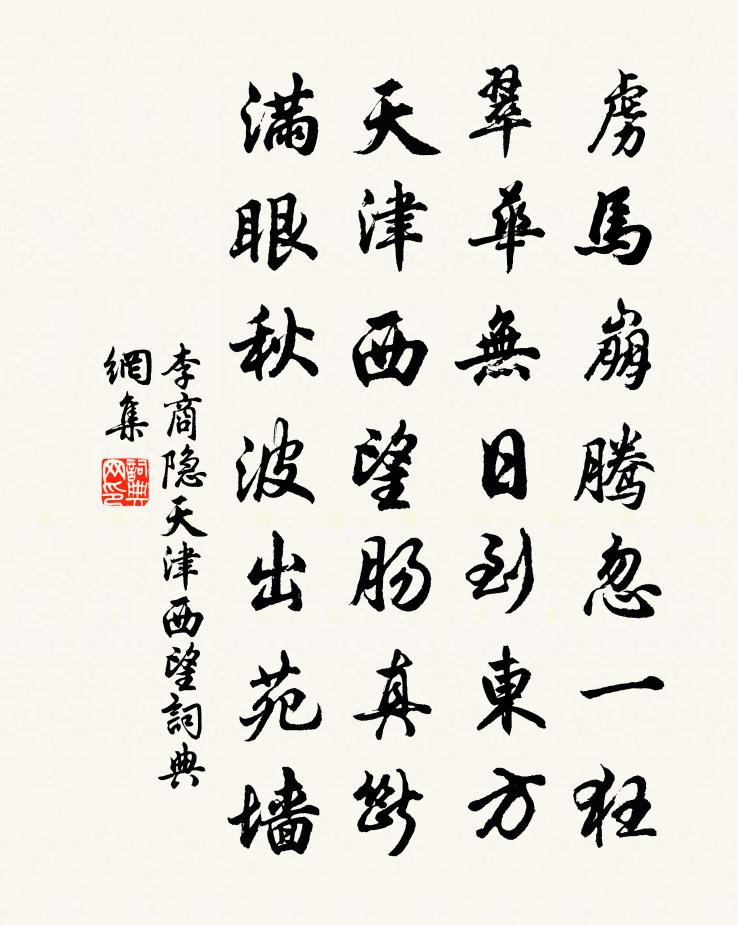 虜馬崩騰忽一狂
翠華無日到東方
天津西望腸真斷
滿眼秋波出苑墙
李商隐天津西望詞典
網集
詞典网印